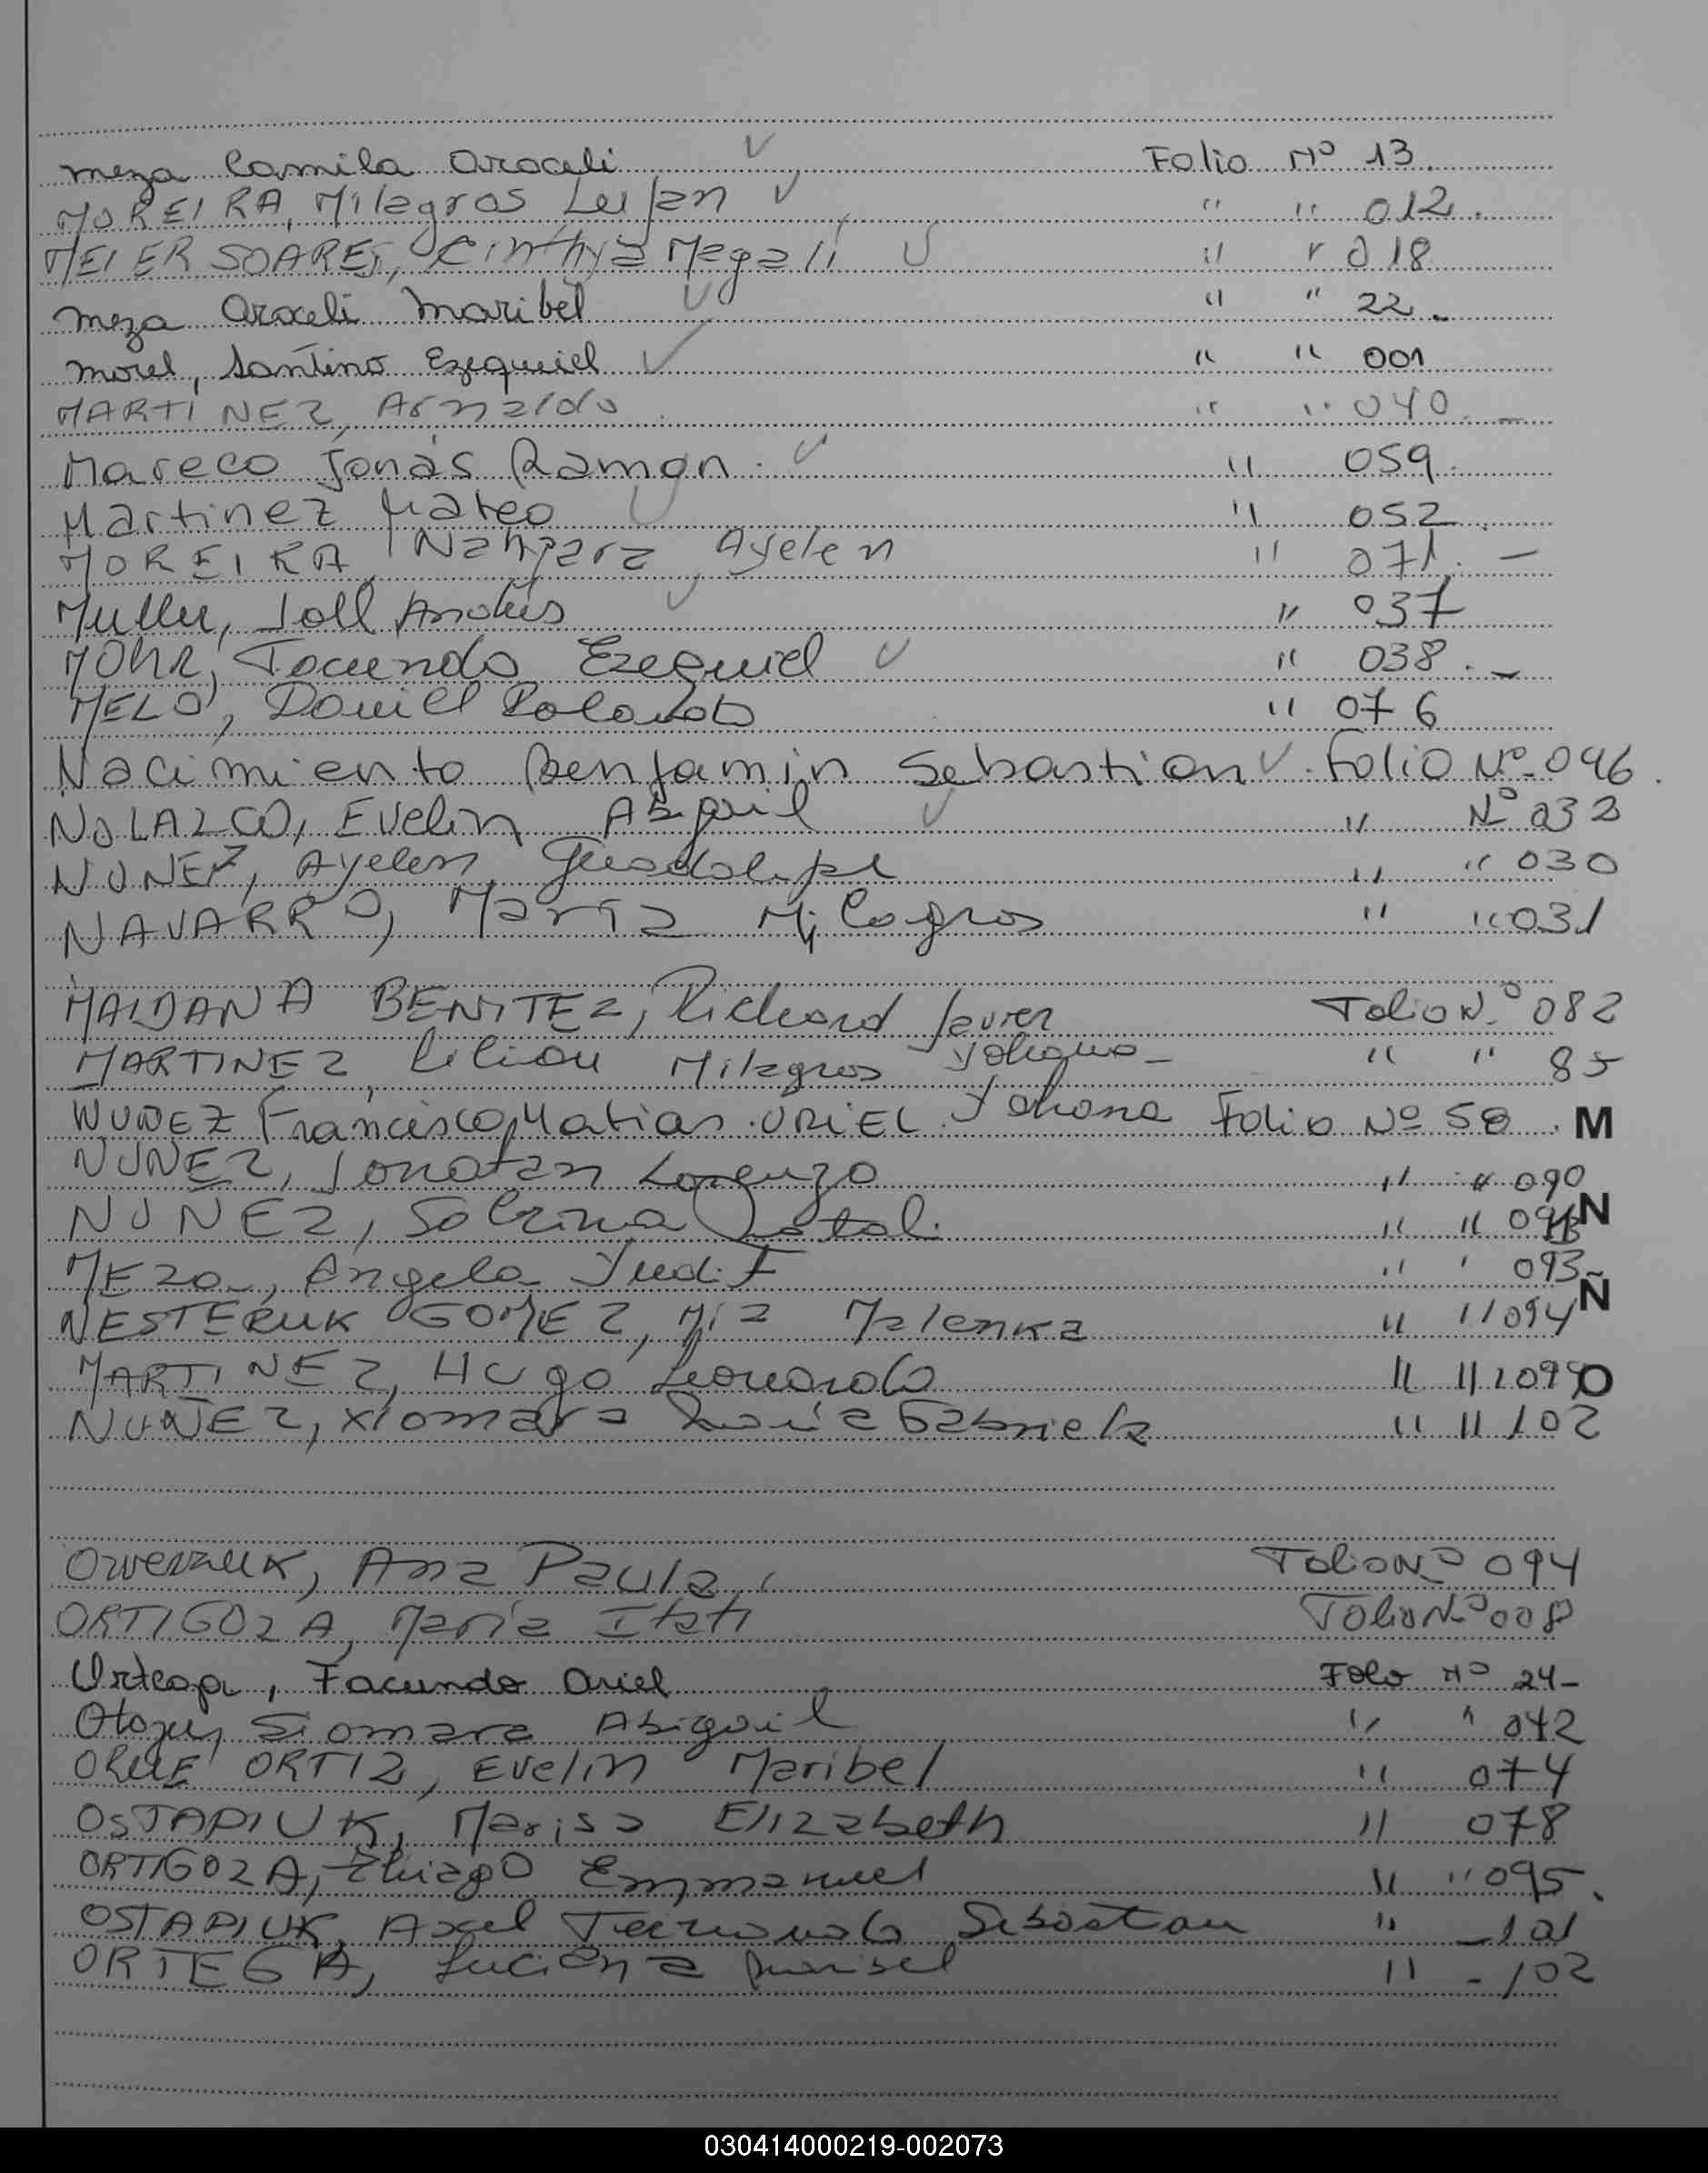 Meza Camila Araceli Folio Nº 13.
MOREIRA, Milagros Lujan " " 012.
MEIER SOARES, Cinthya Magali " " 018
Meza Araceli Maribel " " 22.
Morel, Santino Ezequiel " " 001
MARTINEZ, Arnaldo " " 040. _
Mareco Jonás Ramon. " 059.
Martinez Mateo " 052.
MOREIRA, Nahiara Ayelen " 071. —
Muller, Joll Andrés " 037
MOhR, Facundo Ezequiel " 038. _
MELO, Daniel Rolando " 076
Nacimiento Benjamin Sebastian. Folio Nº 096.
NOLAZCO, Evelin Abigail " Nº 033
NUNEZ, Ayelen Guadalupe " " 030
NAVARRO, María Milagros " " 031
MALDANA BENITEZ, Richard Javier Folio Nº 082
MARTINEZ, Lilian Milagros Yohana _ " " 85
NUNEZ Francisco Matias. URIEL. Yohana Folio Nº 58. M
NUNEZ, Jonatan Lorenzo " " 090
NUNEZ, Sabrina Natali " " N
MEZa, Angela Yudit " " 093
Ñ
NESTERUK GOMEZ, Mia Malenka " " 094
MARTINEZ, Hugo Leonardo " " O
NUÑEZ, Xiomara María Gabriela " " 102
Owerzuk, Ana Paula, Folio Nº 094
ORTIGOZA, María Itati Folio Nº 008
Ortega, Facundo Ariel Folio Nº 24-
Siomara Abigail " " 042
ORUE ORTIZ, Evelin Maribel " 074
OSTAPIUK, Marisa Elizabeth " 078
ORTIGOZA, Thiago Emmanuel " " 095.
OSTAPIUK, Axel Fernando Sebastian " _ 101
ORTEGA, Luciana Marisel " - 102
030414000219-002073